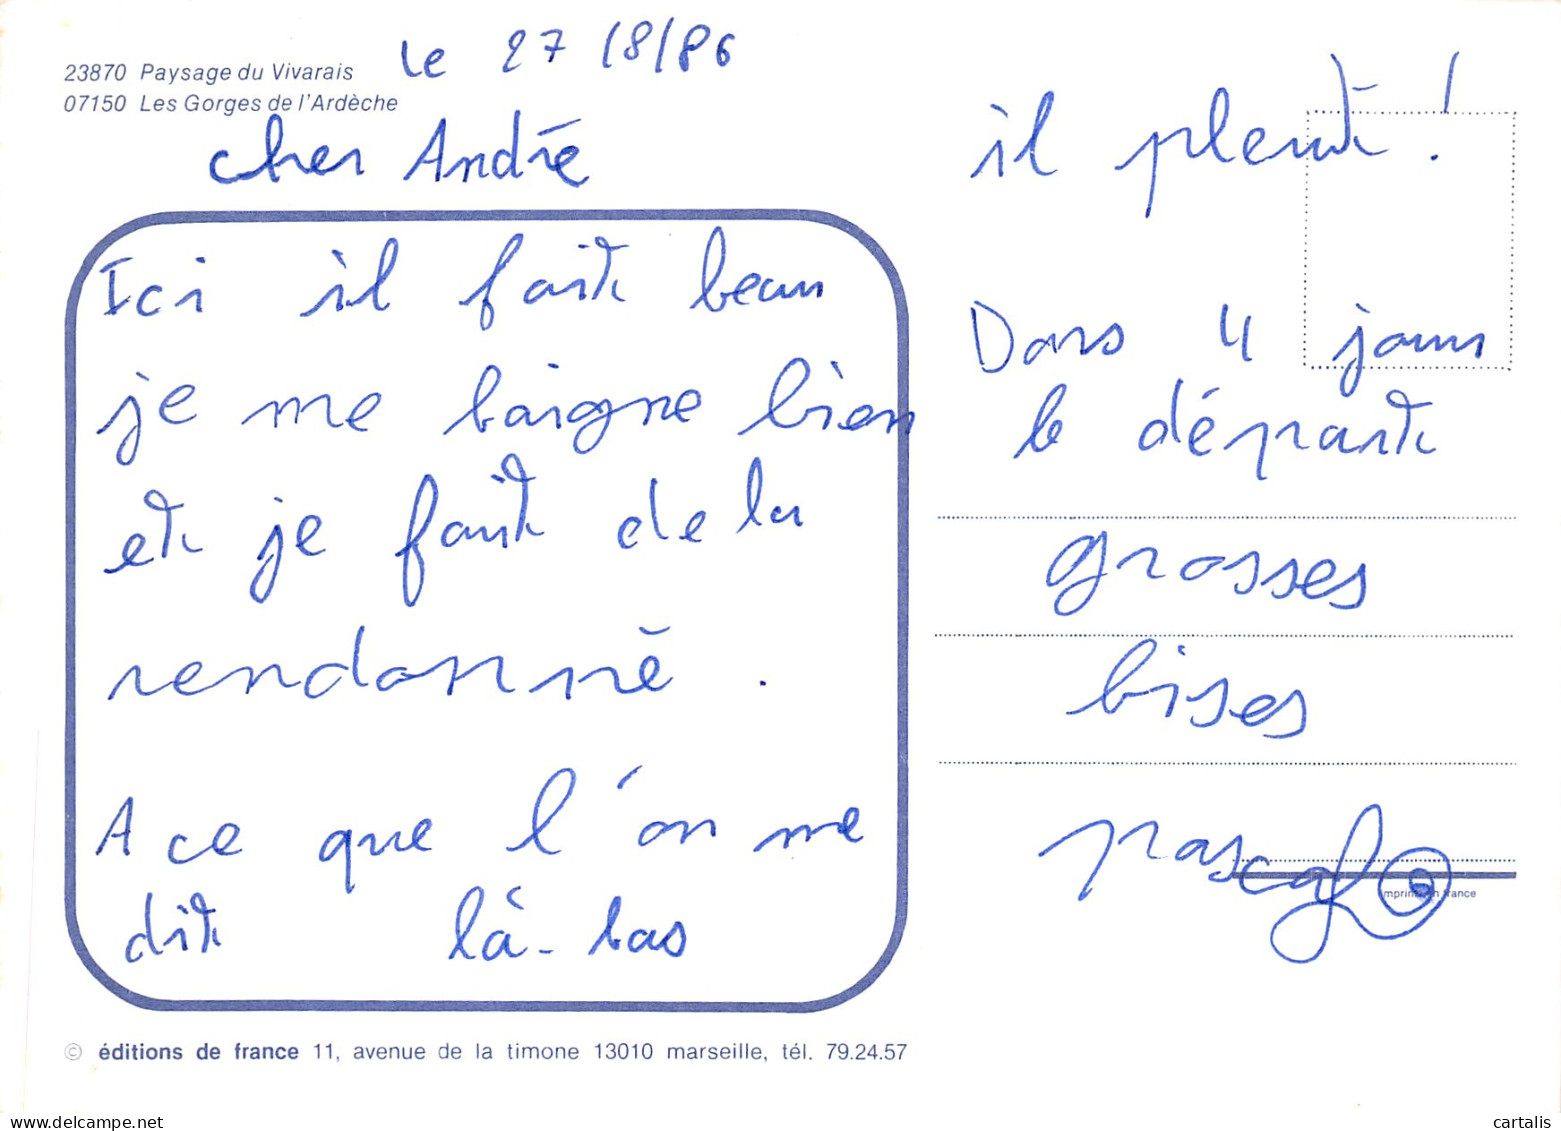 23870 Paysage du Vivarais
07150 Les Gorges de l'Ardèche
le 27/8/86
cher André
Ici il fait beau
je me baigne bien
et je fait de la
rendonné.
A ce que l'on me
dit là-bas
il pleut !
Dans 4 jours
le départ
grosses
bises
pascal
imprimé en france
© éditions de france 11, avenue de la timone 13010 marseille, tél. 79.24.57
www.delcampe.net
cartalis